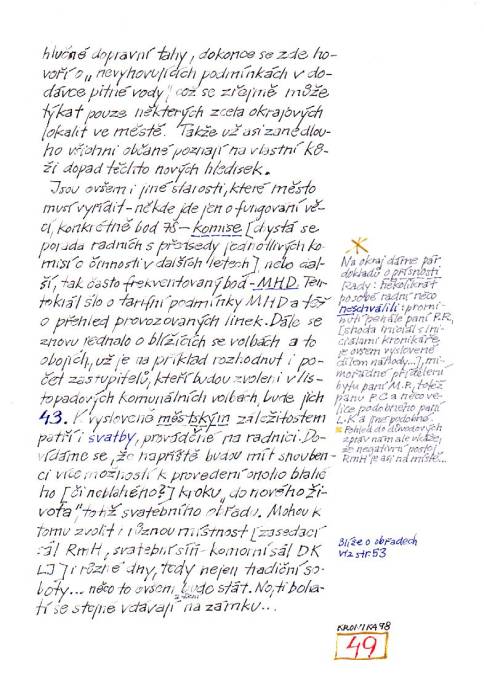 hlučné dopravní tahy, dokonce se zde ho-
voří o „nevyhovujících podmínkách v do-
dávce pitné vody", což se zřejmě může
týkat pouze některých zcela okrajových
lokalit ve městě. Takže už asi zanedlou-
ho všichni občané poznají na vlastní ků-
ži dopad těchto nových hledisek.
Jsou ovšem i jiné starosti, které město
musí vyřídit – někde jde jen o fungování vě-
cí, konkrétně bod 75 – komise [chystá se
porada radních s předsedy jednotlivých ko-
misí o činnosti v dalších letech] nebo dal-
ší, tak často frekventovaný bod – MHD. Ten-
tokrát šlo o tarifní podmínky MHD a též
o přehled provozovaných linek. Dále se
znovu jednalo o blížících se volbách a to
obojích, už je na příklad rozhodnut i po-
čet zastupitelů, kteří budou zvoleni v lis-
topadových komunálních volbách, bude jich
43. K vysloveně městským záležitostem
patří i svatby, prováděné na radnici. Do-
vídáme se, že napříště budou mít snouben-
ci více možností k provedení onoho blahé-
ho [či neblahého?] kroku „do nového ži-
vota", totiž svatebního obřadu. Mohou k
tomu zvolit i různou místnost [zasedací
sál RmH, svatební síň – komorní sál DK
[...]] i různé dny, tedy nejen tradiční so-
boty... něco to ovšem bude stát. No, ti boha-
tí se stejně vdávají na zámku...
Na okraj dáme pár
dokladů o přísnosti
Rady: několikrát
posobě radní něco
neschválili: promi-
nutí penále paní P.R.
[shoda iniciál s ini-
ciálami kronikáře
je ovšem vysloveně
čílem náhody...], mi-
mořádné přidělení
bytu paní M.P., totéž
pánu P.C a něco ve-
lice podobného paní
L.K a jiné podobné.
Pohled do důvodových
zpráv nám ale ukáže,
že negativní postoj
RmH je asi na místě...
Blíže o obřadech
viz str. 53
KRONIKA 98
49